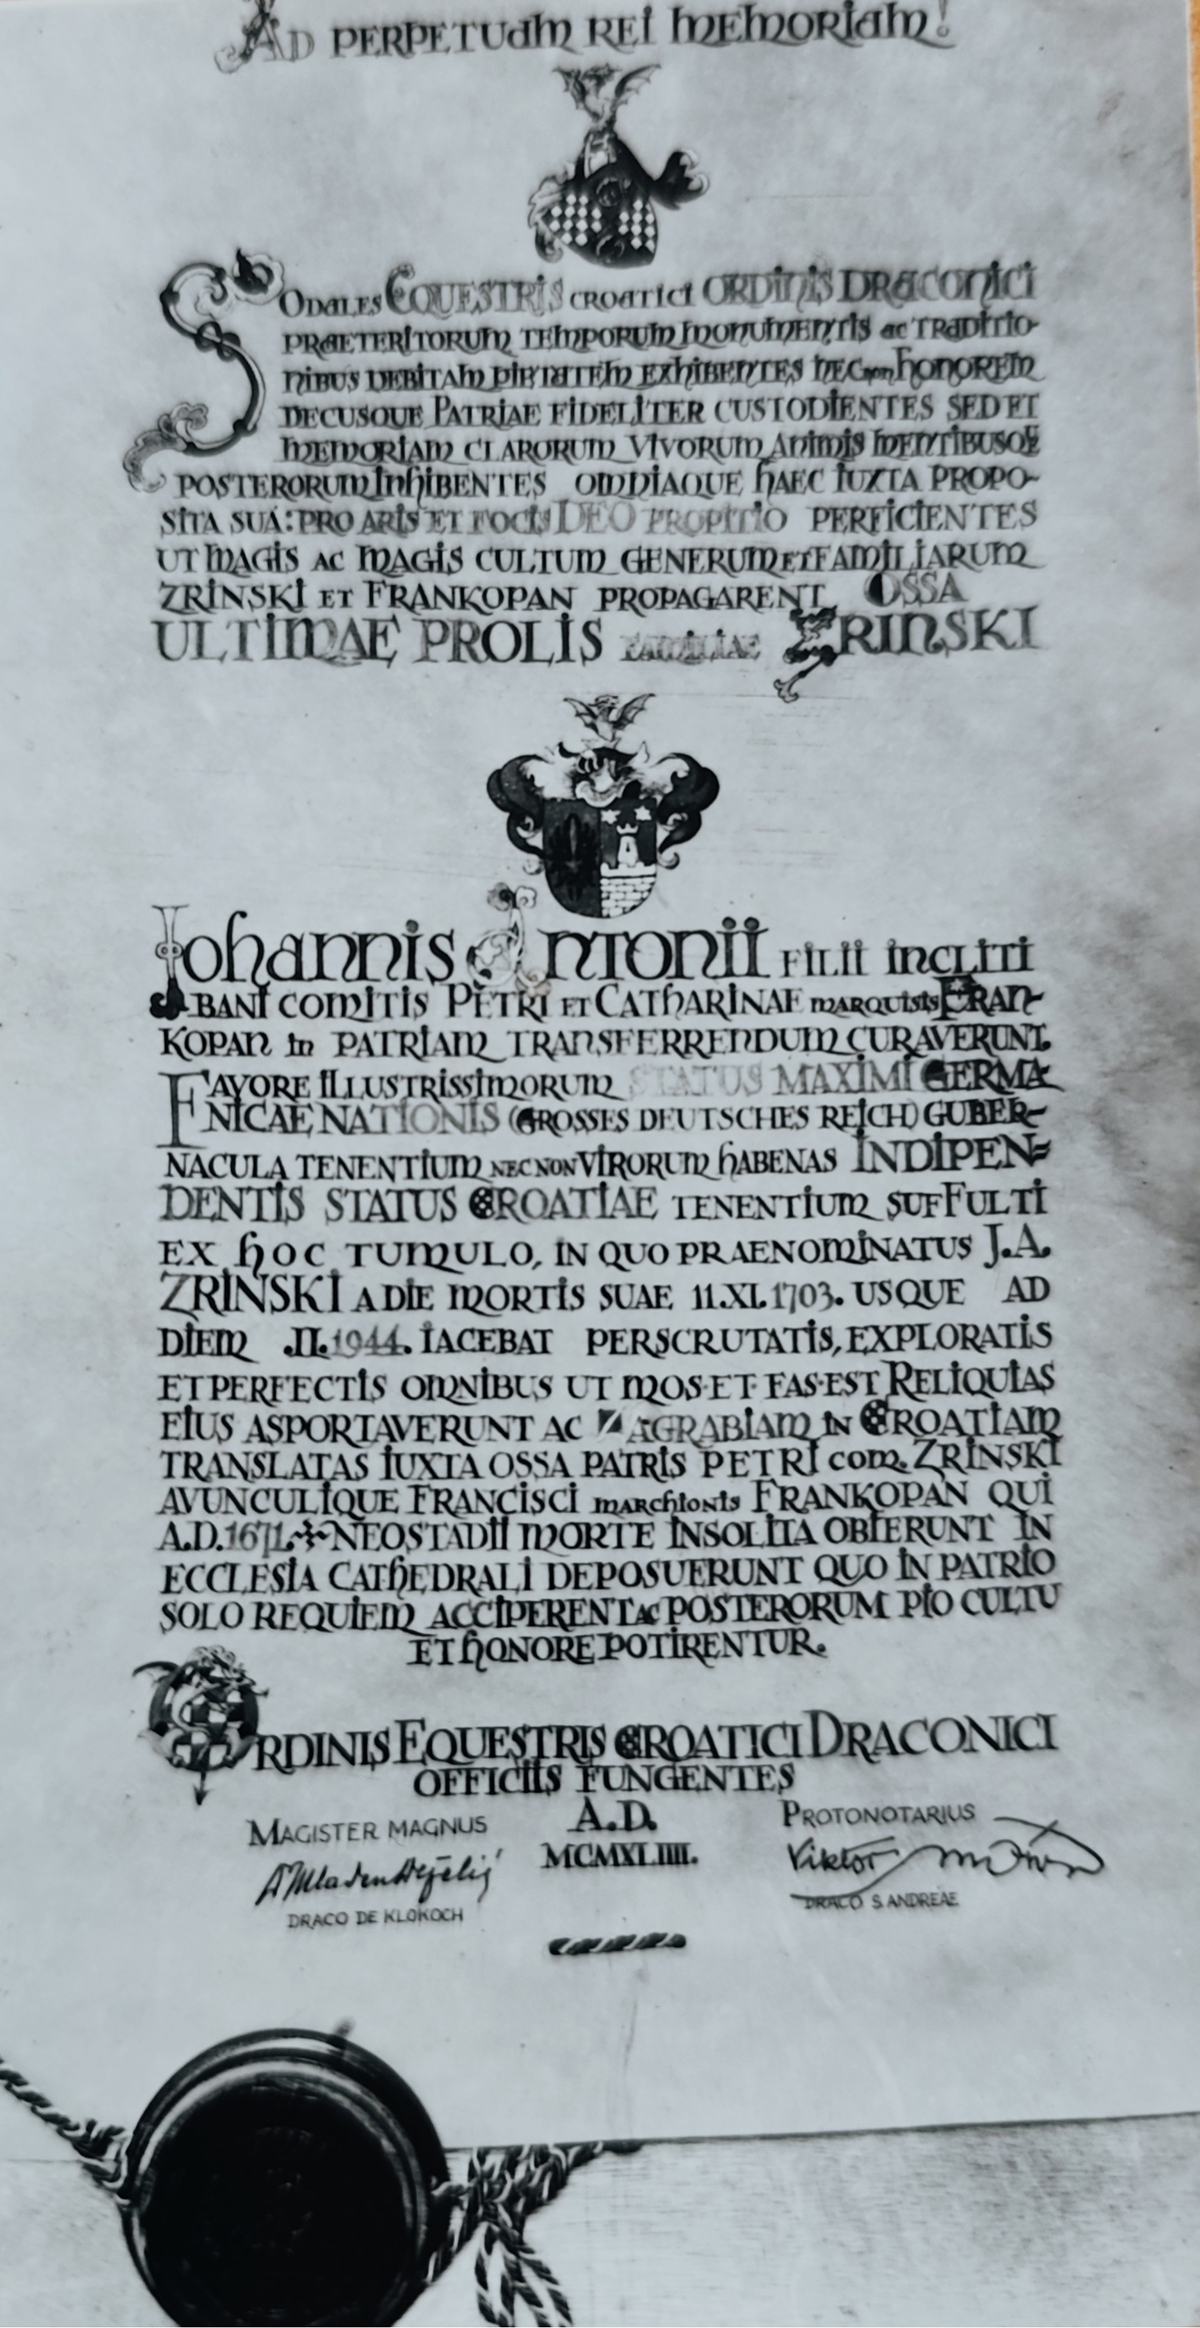 Ad perpetuam rei memoriam!
Sodales Equestris croatici Ordinis Draconici
praeteritorum temporum monumentis ac traditio-
nibus debitam pietatem exhibentes nec non honorem
decusque Patriae fideliter custodientes sed et
memoriam clarorum vivorum animis mentibusqe
posterorum inhibentes omniaque haec iuxta propo-
sita sua: pro aris et focis Deo propitio perficientes
ut magis ac magis cultum generum et familiarum
Zrinski et Frankopan propagarent Ossa
ultimae prolis familiae Zrinski
Johannis Antonii filii incliti
bani comitis Petri et Catharinae marquisis Fran-
kopan in patriam transferrendum curaverunt.
Favore illustrissimorum Status Maximi Germa-
nicae Nationis (Grosses Deutsches Reich) guber-
nacula tenentium nec non virorum habenas Indipen-
dentis Status Croatiae tenentium suffulti
ex hoc tumulo, in quo praenominatus J.A.
Zrinski a die mortis suae 11.XI.1703. usque ad
diem .II.1944. iacebat perscrutatis, exploratis
et perfectis omnibus ut mos·et·fas·est Reliquias
eius asportaverunt ac Zagrabiam in Croatiam
translatas iuxta ossa patris Petri com. Zrinski
avunculique Francisci marchionis Frankopan qui
A.D. 1671. Neostadii morte insolita obierunt in
ecclesia cathedrali deposuerunt quo in patrio
solo requiem acciperent ac posterorum pio cultu
et honore potirentur.
Ordinis Equestris Croatici Draconici
officiis fungentes
Magister Magnus A.D. Protonotarius
MCMXLIIII. Viktor
Draco de Klokoch Draco S Andreae